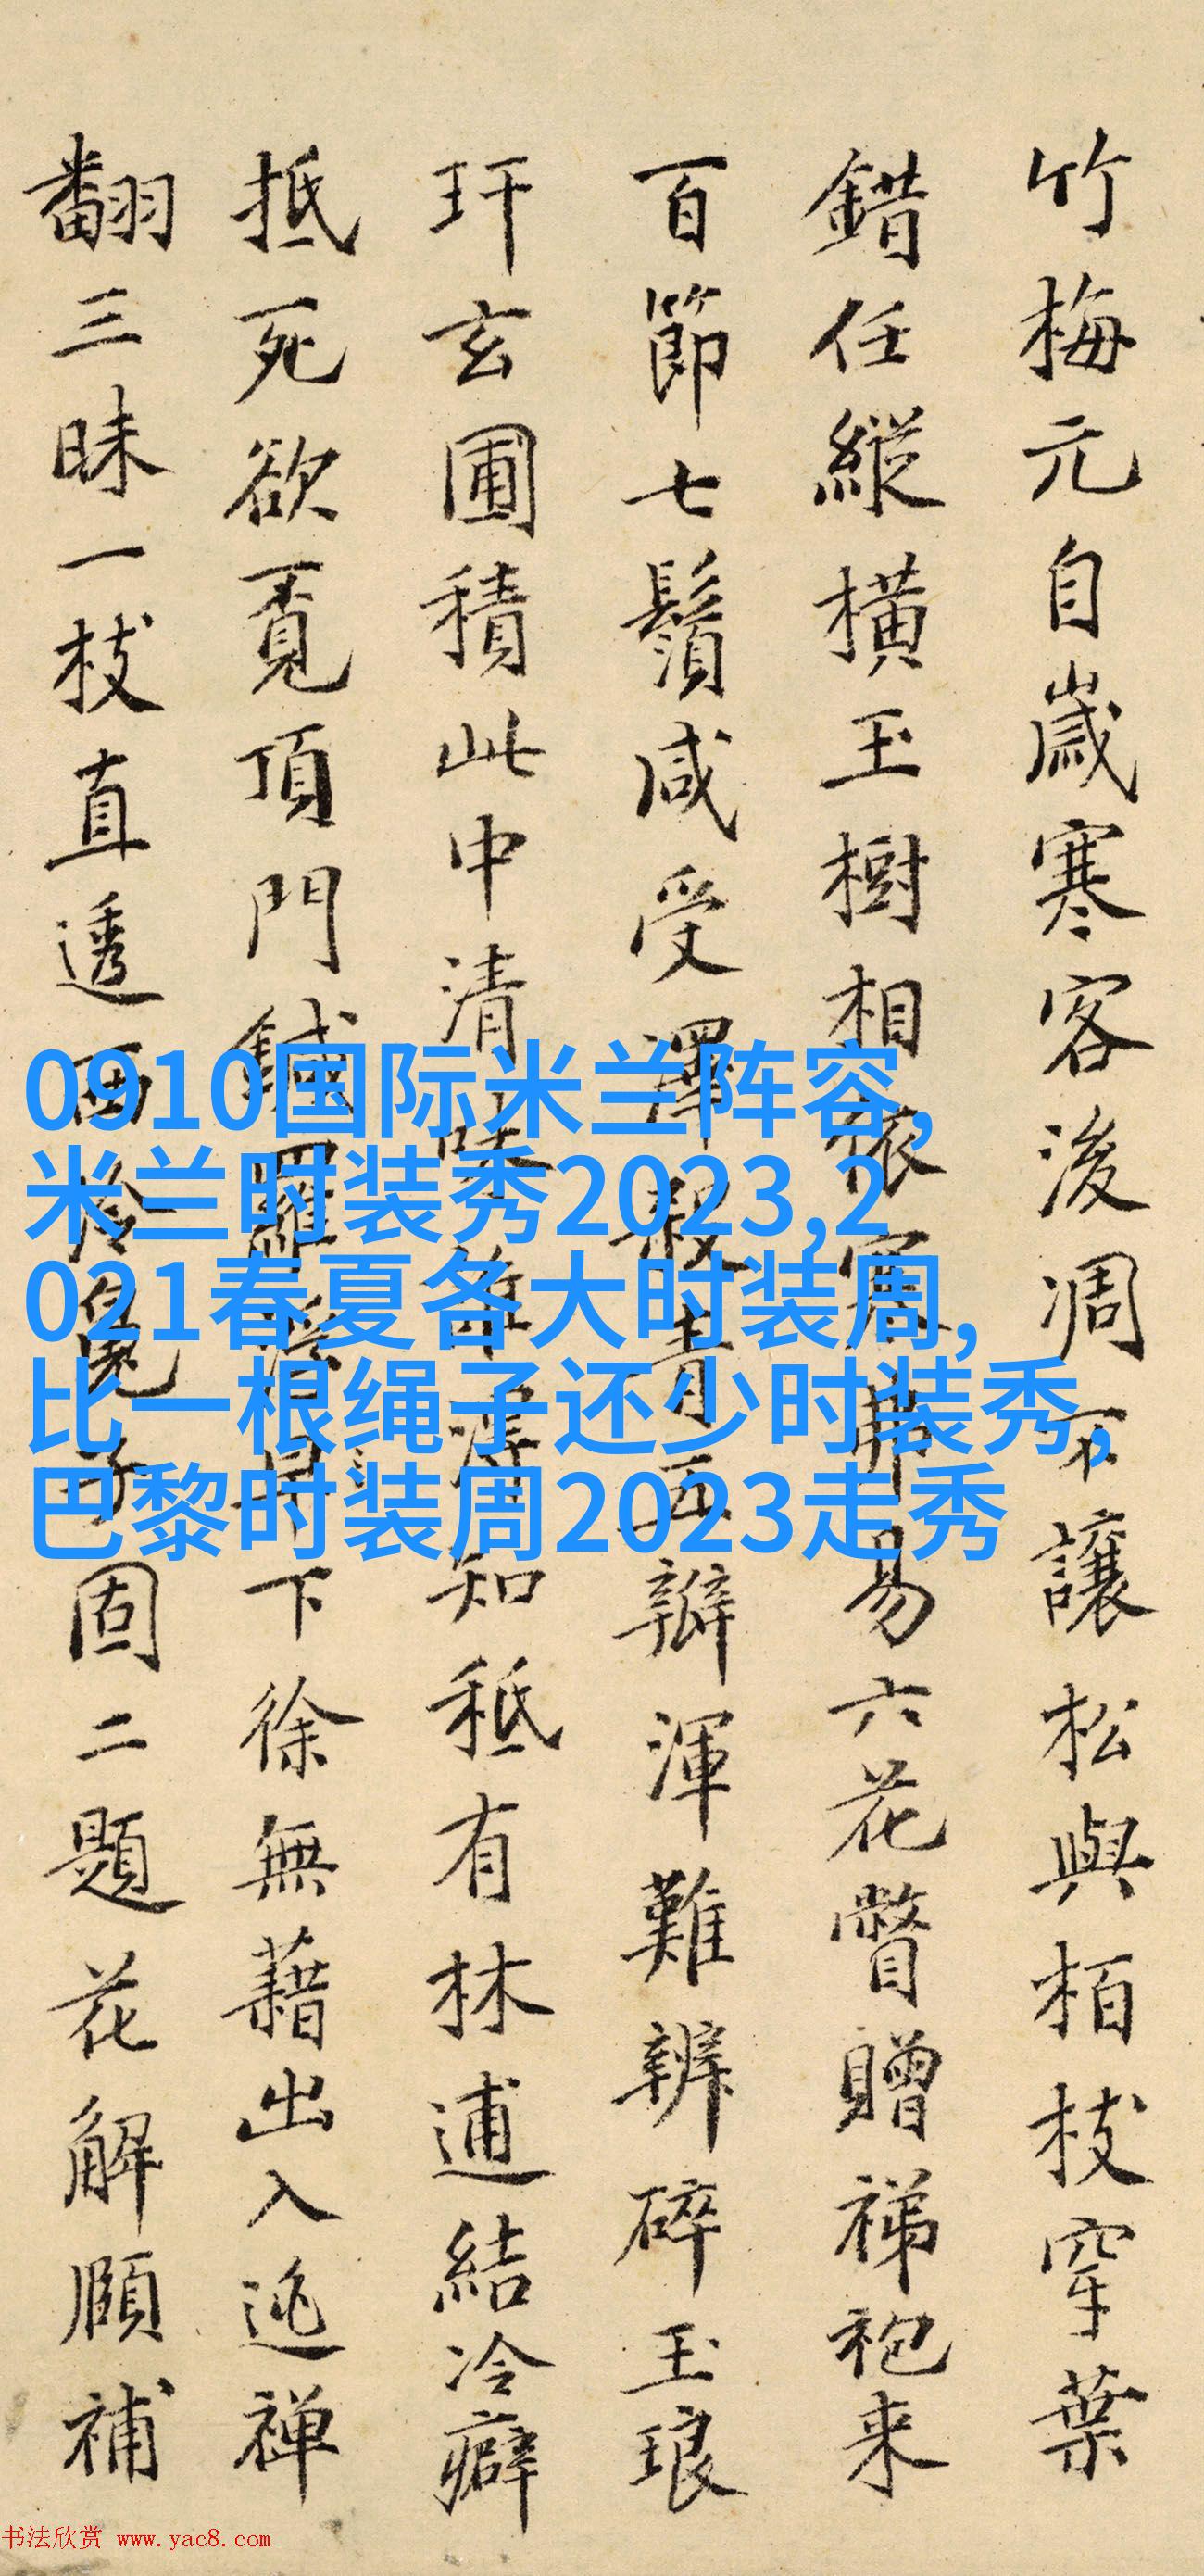 竹梅元自歲寒客後凋不讓松與栢枝穿葉
錯任縱橫玉樹相依寒弗易六花瞥贈祶袍来
百節七鬚咸受澤殺青五瓣渾難辨碎玉琅
玕玄圃積此中清味知秪有林逋結冷癖
抵死欲覔頂門鍼羅下徐無藉出入逃禪
翻三昧一枝直透西子固二題花解頤補
0910国际米兰阵容,
米兰时装秀2023,2
021春夏各大时装周,
比一根绳子还少时装秀,
巴黎时装周2023走秀
书法欣赏 www.yac8.com